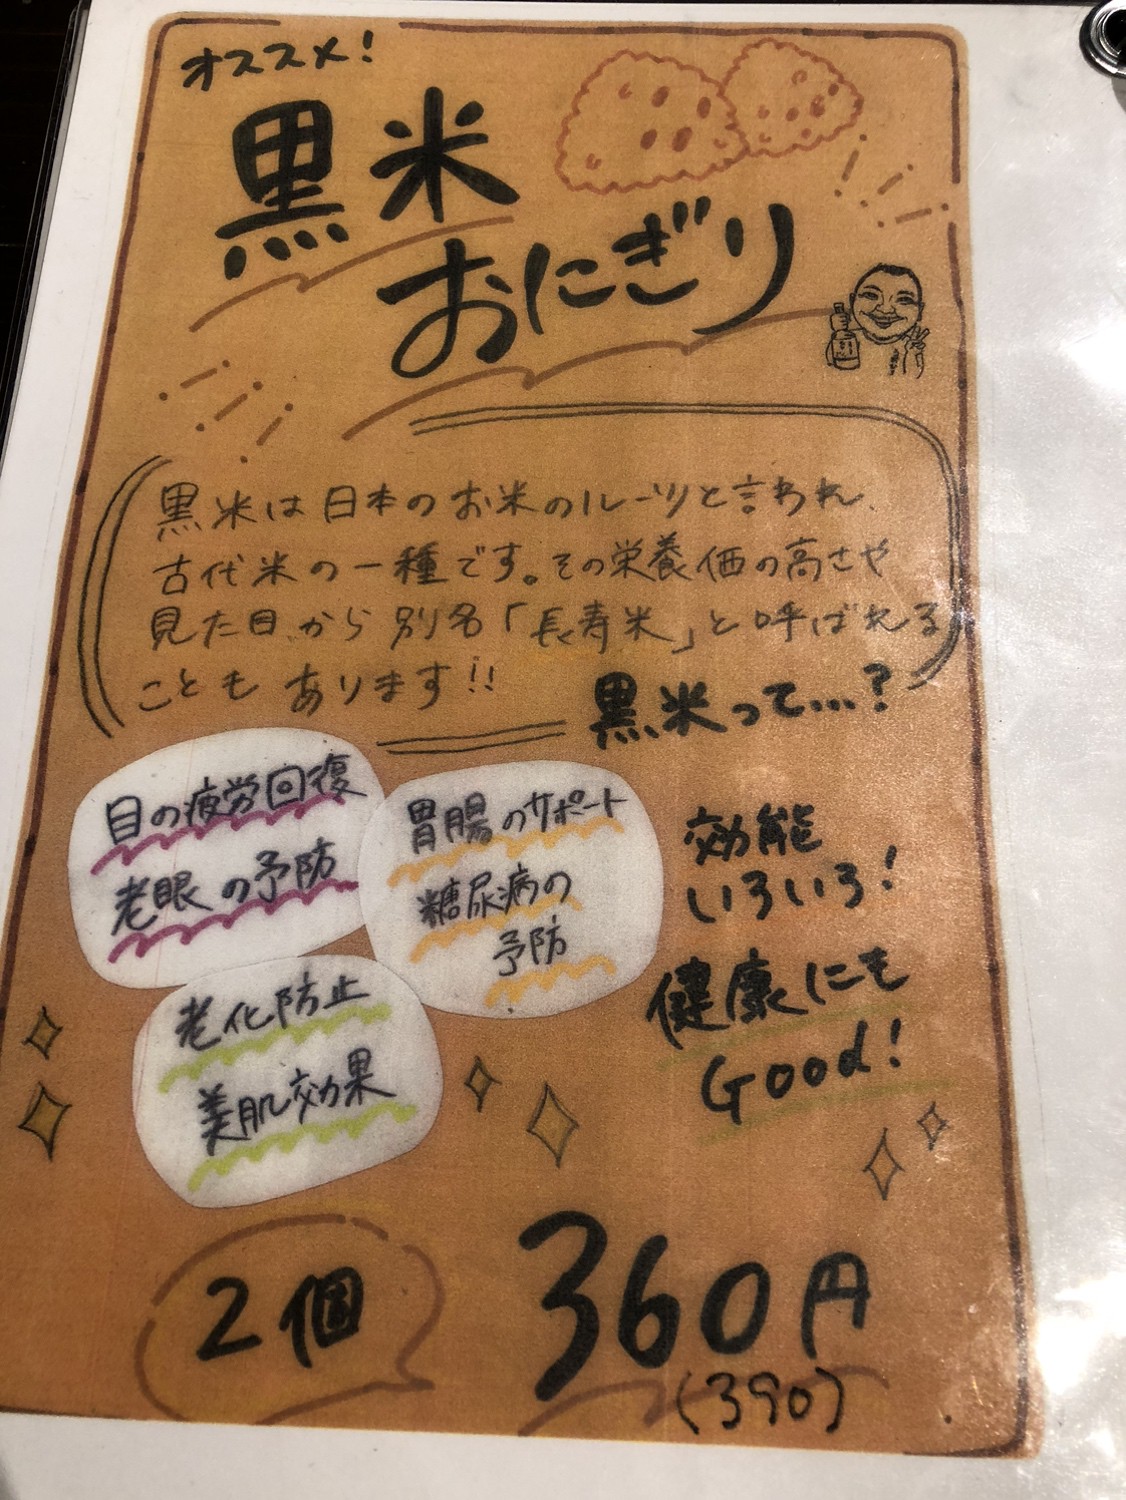 オススメ!
黒米
おにぎり
黒米は日本のお米のルーツと言われ、
古代米の一種です。その栄養価の高さや
見た目から別名「長寿米」と呼ばれる
こともあります!!
黒米って…?
目の疲労回復
老眼の予防
胃腸のサポート
糖尿病の
予防
老化防止
美肌効果
効能
いろいろ!
健康にも
Good!
2個
360円
(390)